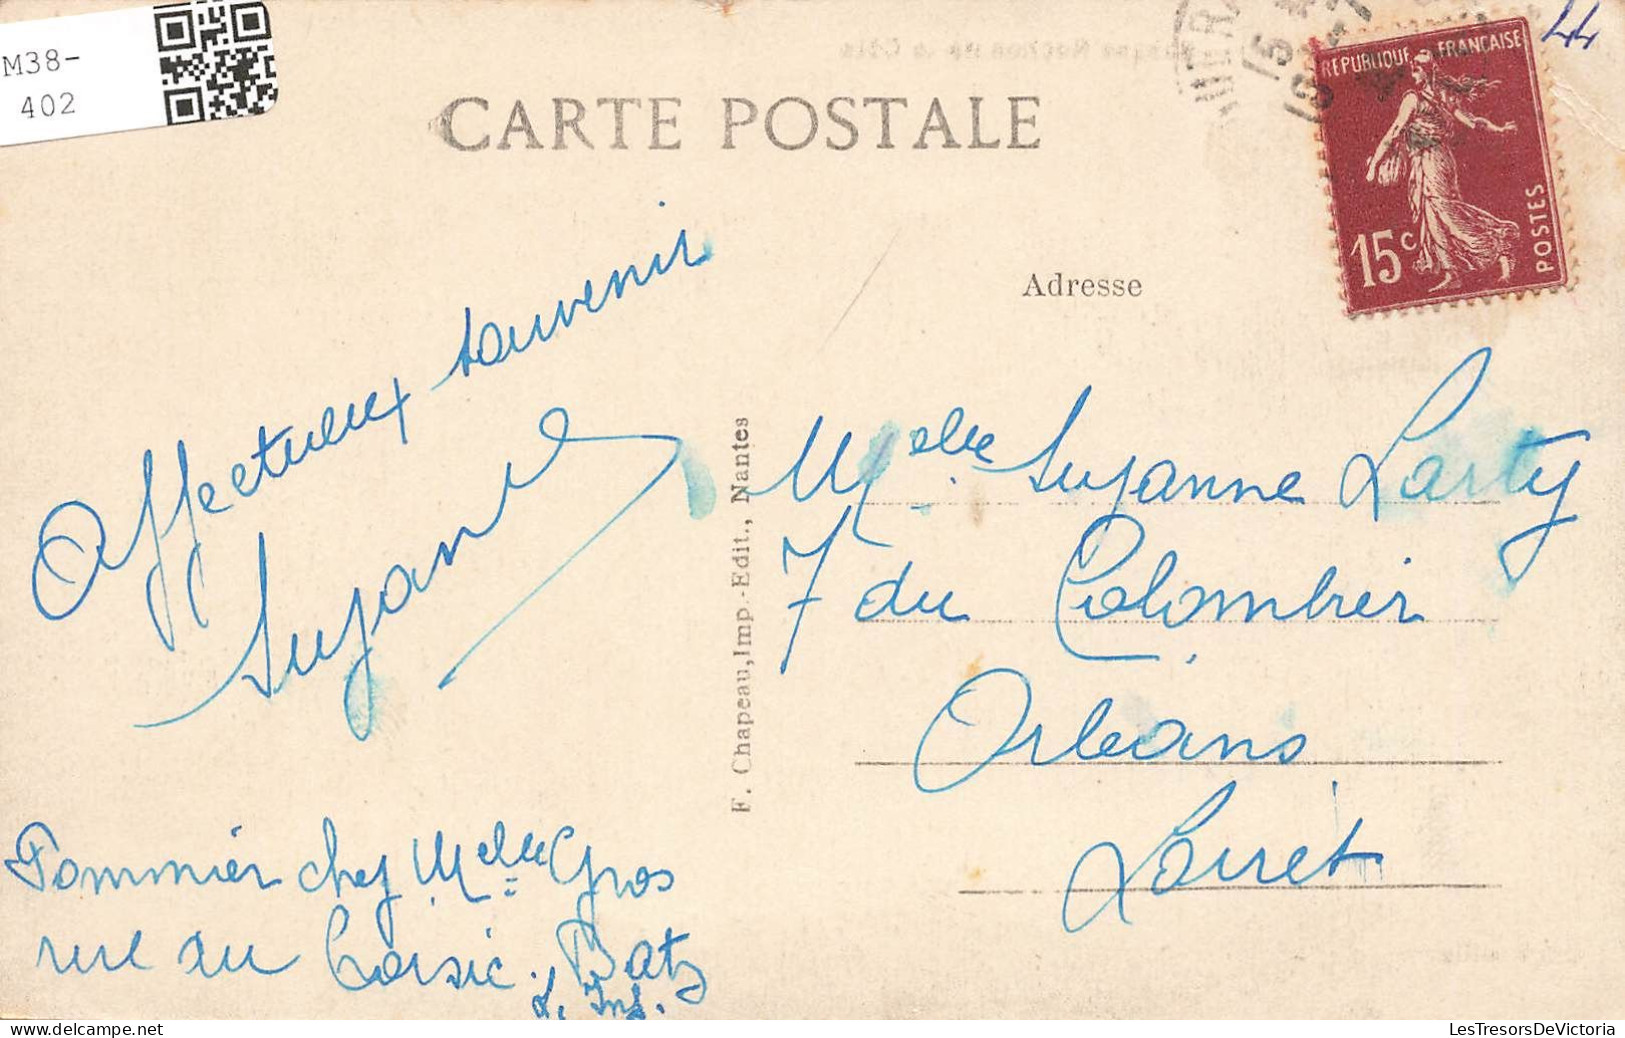 M38-
402
CARTE POSTALE
44
REPUBLIQUE FRANÇAISE
15c
POSTES
Adresse
Affectueux souvenir
Suzanne
F. Chapeau, Imp.-Edit., Nantes
Melle Suzanne Larty
7 du Colombier
Orléans
Loiret
Pommier chez Melle Gros
rue du Croisic. Batz
L. Inf.
LesTresorsDeVictoria